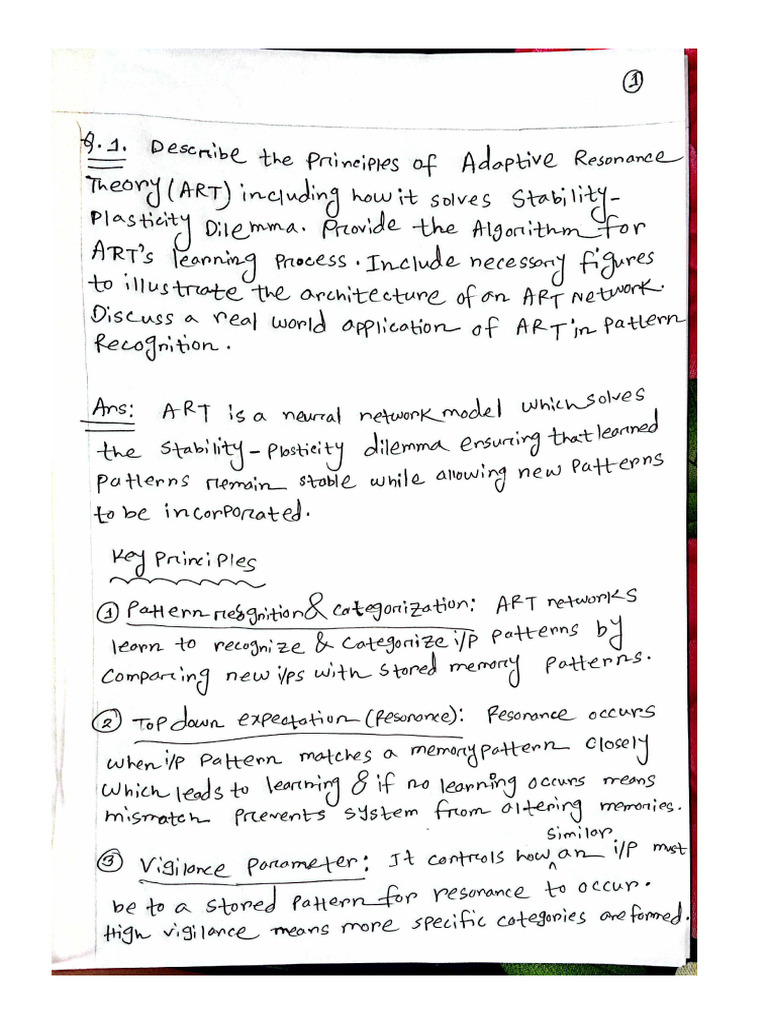 1
Q.1. Describe the Principles of Adaptive Resonance
Theory (ART) including how it solves Stability-
Plasticity Dilemma. Provide the Algorithm for
ART's learning Process. Include necessary figures
to illustrate the architecture of an ART Network.
Discuss a real world application of ART in Pattern
Recognition.
Ans: ART is a neural network model which solves
the Stability-Plasticity dilemma ensuring that learned
patterns remain stable while allowing new Patterns
to be incorporated.
Key Principles
1 Pattern recgnition & categorization: ART networks
learn to recognize & categorize i/p patterns by
comparing new i/ps with stored memory patterns.
2 Top down expectation (Resonance): Resonance occurs
when i/p pattern matches a memory pattern closely
which leads to learning & if no learning occurs means
mismatch prevents system from altering memories.
3 Vigilance Parameter: It controls how similar an i/p must
be to a stored Pattern for resonance to occur.
High vigilance means more specific categories are formed.